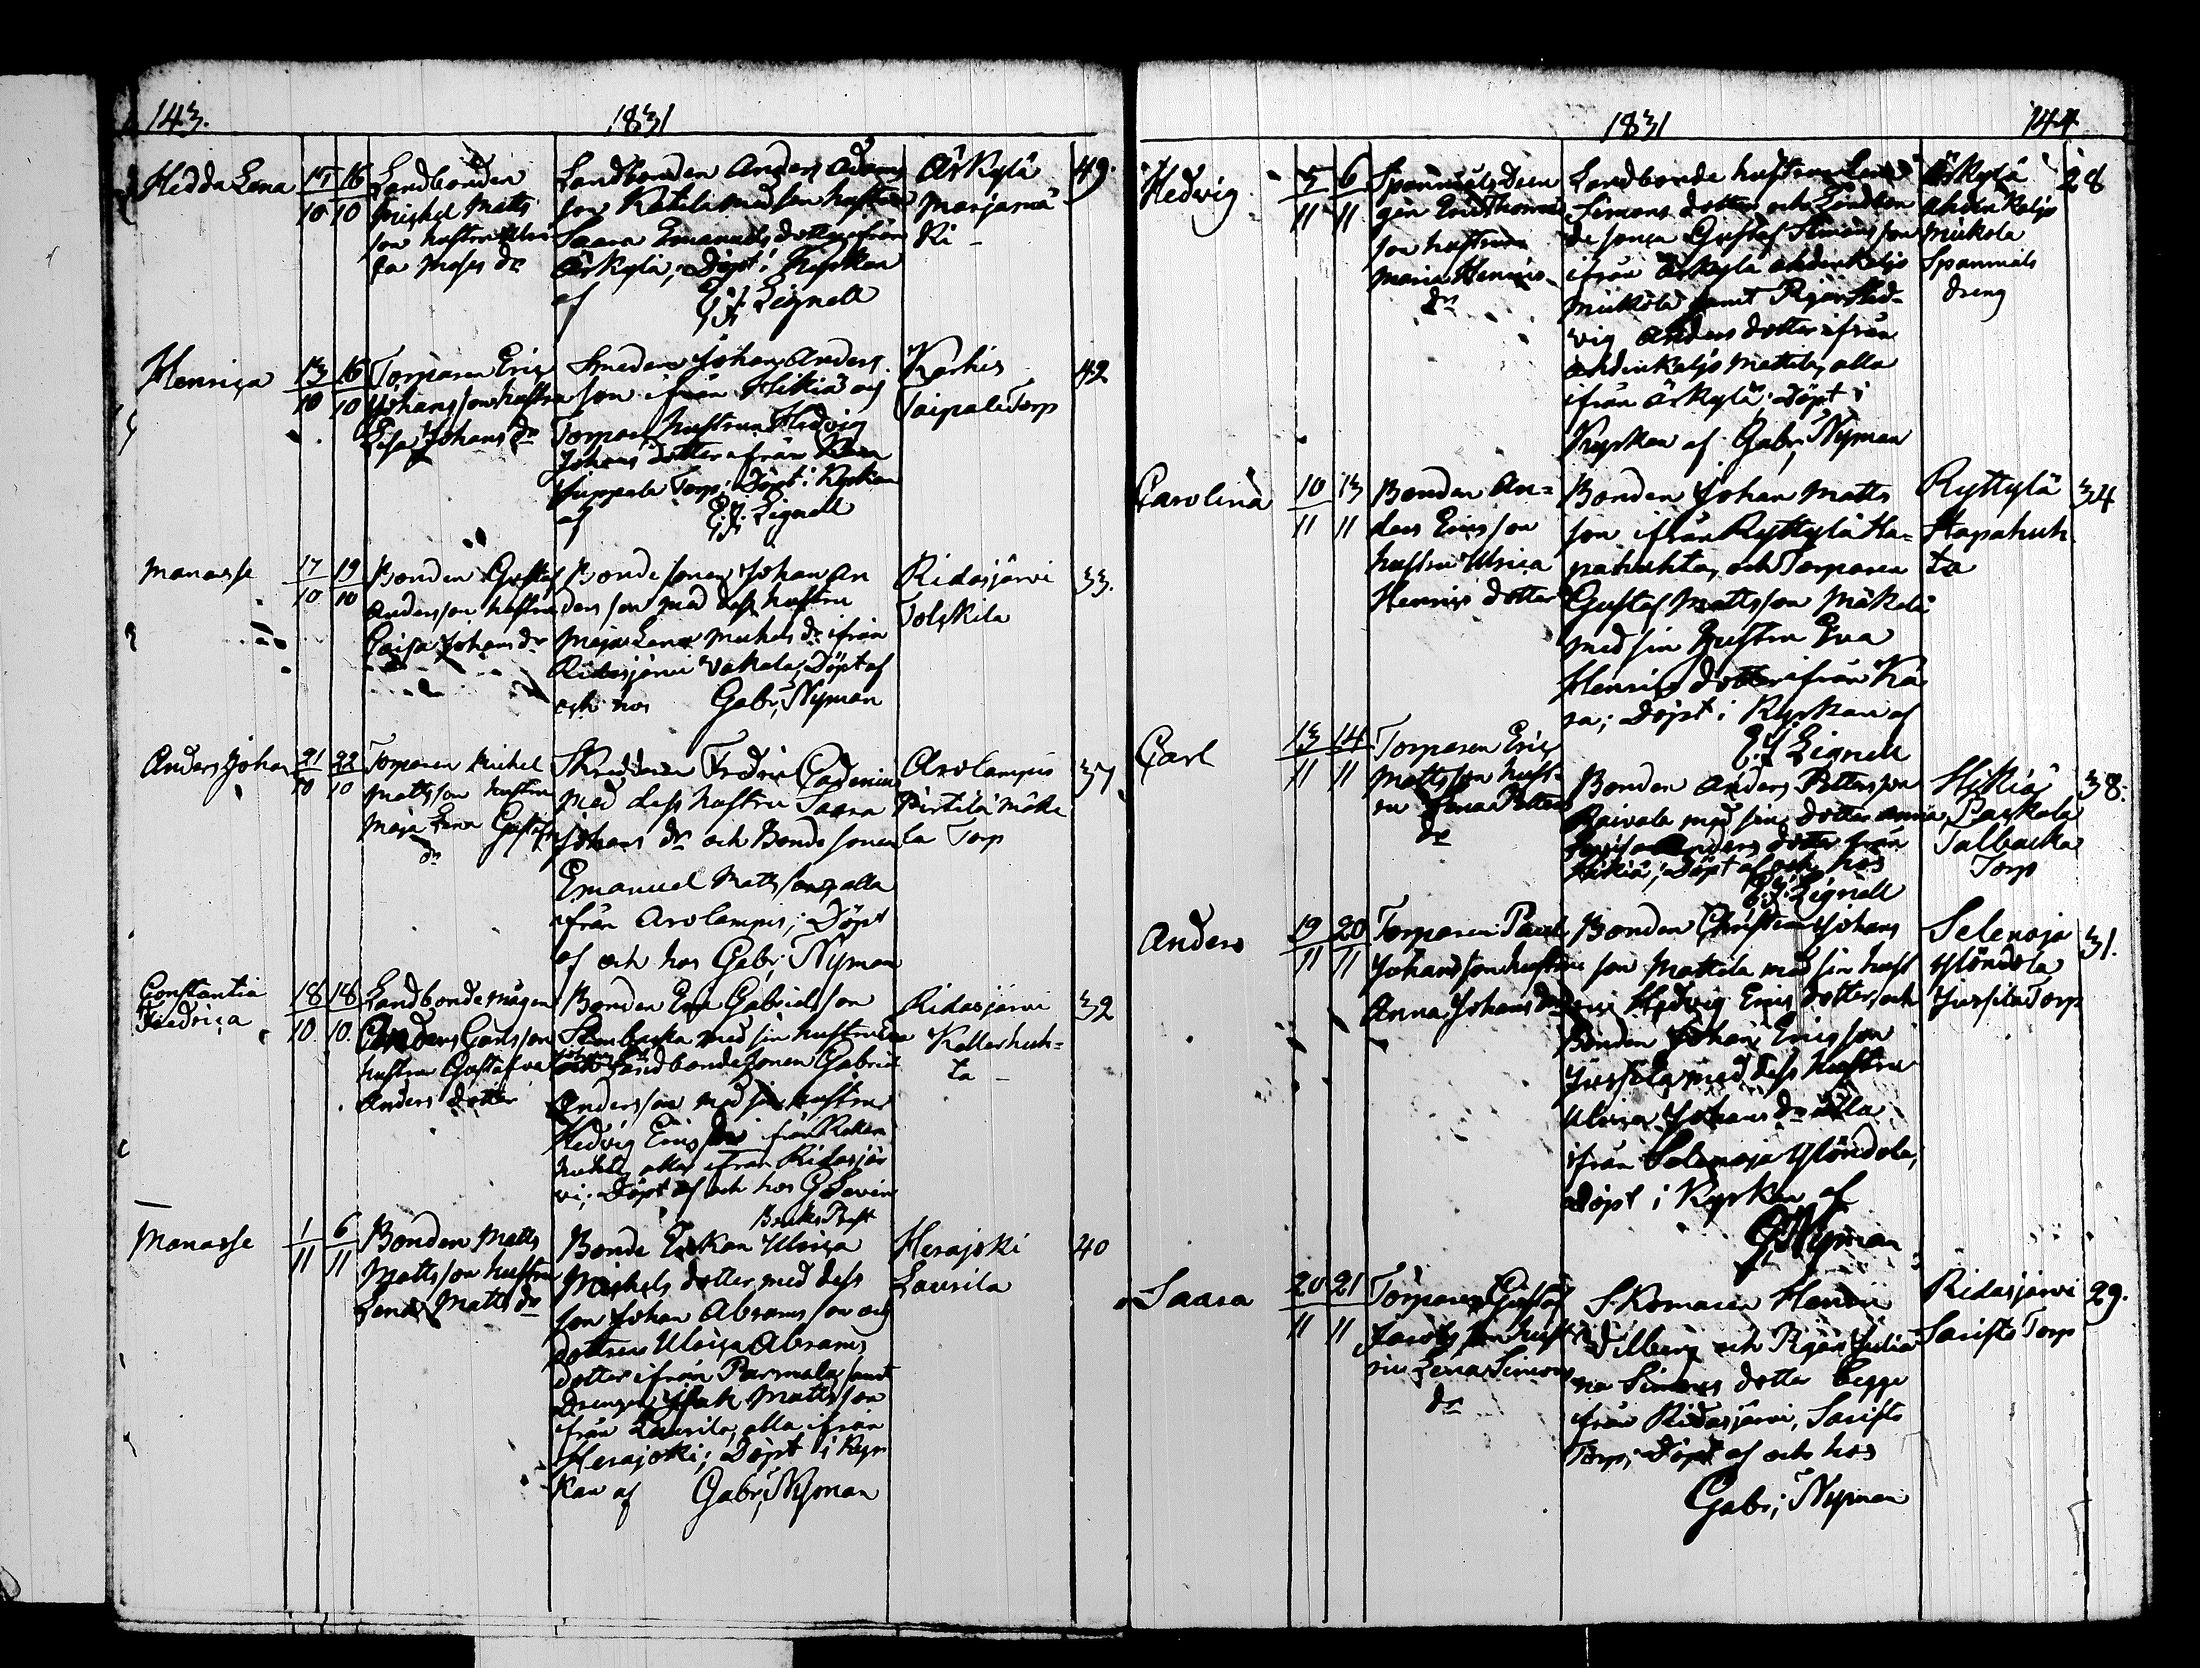 143.
1831
Hedda Lena
15 16
10 10
Landbonden
Michel Matts
son hustru
Moses dr
Landbonden Anders Adams
son Katila med son hustru
Saara Emanuels dotter ifrån
Årkylä; Döpt i Kyrkan
af E. J. Lignell
Årkylä
Marjamä
ki –
49.
Henrica
13 16
10 10
Torparen Eric
Johansson hustru
Lisa Johans dr
Smeden Johan Anders
son ifrån Hikiä och
Torpare hustrun Hedvig
Johans dotter ifrån
Torp; Döpt i Kyrkan
af E. J. Lignell
Karhis
Taipale Torp
42
Manasse
17 19
10 10
Bonden Gustaf
Andersson hustru
Caisa Johans dr
Bondesonen Johan An
dersson med dess hustru
Maja Lena Michels dr ifrån
Ridasjärvi Vakala, Döpt af
och hos Gabr; Nyman
Ridasjärvi
Tolskila
33.
Anders Johan
21 22
10 10
Torparen Michel
Mattsson hustru
Maja Lena Gustafs
dr
Skreddaren Fredric
med dess hustru Saara
Johans dr och Bonde sonen
Emanuel Mattsson, alla
ifrån Arolampis; Döpt
af och hos Gabr; Nyman
Arolampis
Pirtilä Mäke
la Torp
37
Constantia
Fredrica
18 18
10. 10.
Landbondemågen
Anders Carlsson
hustru Gustafva
Anders dotter
Bonden Eric Gabrielsson
Stenbacka med sin hustru
och Landbondesonen Gabriel
Andersson med sin hustru
Hedvig Erics dr från
alla ifrån Ridasjär
vi; Döpt af och hos G
Bruks Prest
Ridasjärvi
Kallerhuh=
ta –
32
Manasse
1 6
11 11
Bonden Matts
Mattsson hustru
Lena Matts dr
Bonde Enkan Ulrica
Michels dotter med dess
son Johan Abramsson och
dottren Ulrica Abrams
dotter ifrån Parmala, samt
Drengen Isak Mattsson
ifrån Laurila, alla ifrån
Herajoki; Döpt i Kyr
kan af Gabr; Nyman
Herajoki
Laurila
40
1831
144
Hedvig
5 6
11 11
Spannmåls
Eric Thomas
son hustrun
Maria Henrics
dr
Landbonde hustrun Lena
Simons dotter och Landbon
de sonen Gustaf Simonsson
ifrån Årkylä Ahdinkaljo
Mickola samt Pigan Hed=
vig Anders dotter ifrån
Ahdinkaljo Mattila, alla
ifrån Årkylä. Döpt i
Kyrkan af Gabr; Nyman
Årkylä
Ahdinkaljo
Mickola
Spanmåls
dreng
28
Carolina
10 13
11 11
Bonden An=
ders Ericsson
hustru Ulrica
Henrics dotter
Bonden Johan Matts
son ifrån Ryttylä Ha=
pahuhta, och Torparen
Gustaf Mattsson Mäkelä
med sin Hustru Eva
Henrics dotter ifrån Kä
rä; Döpt i Kyrkan af
E. J. Lignell
Ryttylä
Hapahuh
ta
34
Carl
13 14
11 11
Torparen Eric
Mattsson hust=
ru Lena Petters
dr
Bonden Anders Pettersson
Raivala med sin dotter Anna
Anders dotter från
Hikiä; Döpt af och hos
E. J. Lignell
Hikiä
Paskala
Talbacka
Torp
38.
Anders
19 20
11 11
Torparen Paul
Johansson hustru
Anna Johans dr
Bonden Christian Johans
son Mattila med sin hust
ru Hedvig Erics dotter, och
Bonden Johan Ericsson
Jussila med dess hustru
Ulrica Johans dr alla
ifrån Selenoja Ylöndola,
Döpt i Kyrkan af
G Nyman
Selenoja
Ylöndola
Jussila Torp
31.
Saara
20 21
11 11
Torparen Gustaf
Jacobsson hust
ru Lena Simons
dr
S.Komacen
och Pigan Julia
na Simons dotter begge
ifrån Ridasjärvi, Saristo
Torp; Döpt af och hos
Gabr; Nyman
Ridasjärvi
Saristo Torp
29.